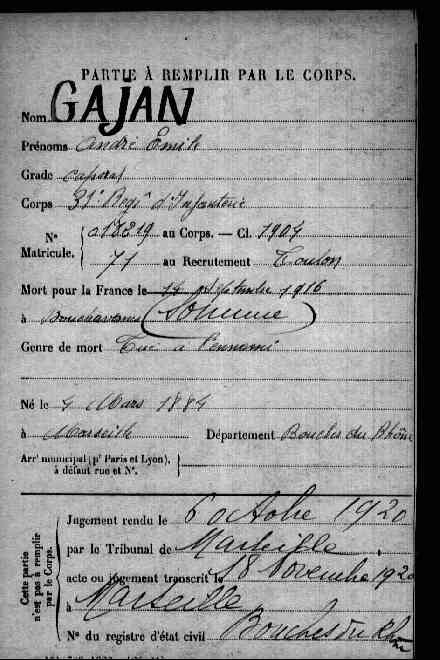 PARTIE À REMPLIR PAR LE CORPS.
Nom GAJAN
Prénoms André Emile
Grade caporal
Corps 31e Regt d'Infanterie
Nos Matricule. au Corps. — Cl. 1904
71 au Recrutement Toulon
Mort pour la France le 14 Septembre 1916
à Bouchavesnes (Somme)
Genre de mort Tué à l'ennemi
Né le 4 Mars 1884
à Marseille Département Bouches du Rhône
Arrt municipal (pr Paris et Lyon), à défaut rue et No.
Cette partie n'est pas à remplir par le Corps.
Jugement rendu le 6 octobre 1920
par le Tribunal de Marseille
acte ou jugement transcrit le 18 Novembre 1920
à Marseille
No du registre d'état civil Bouches du Rhône